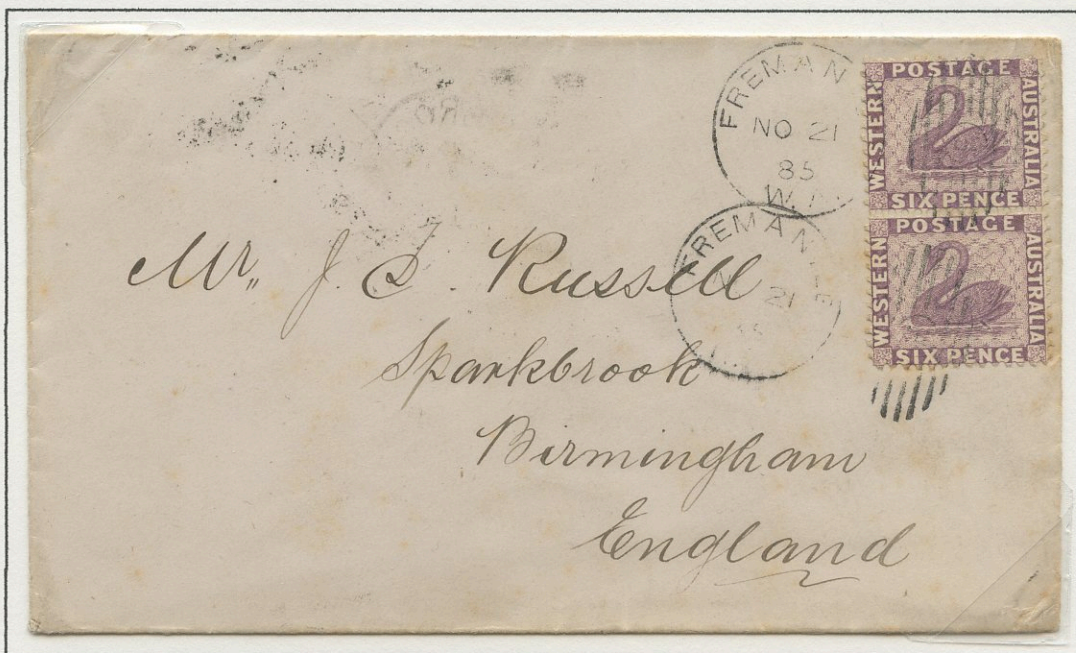 FREMAN
NO 21
85
W.
POSTAGE
WESTERN
AUSTRALIA
SIX PENCE
FREMAN E
N 21
POSTAGE
WESTERN
AUSTRALIA
SIX PENCE
Mr. J. S. Russell
Sparkbrook
Birmingham
England